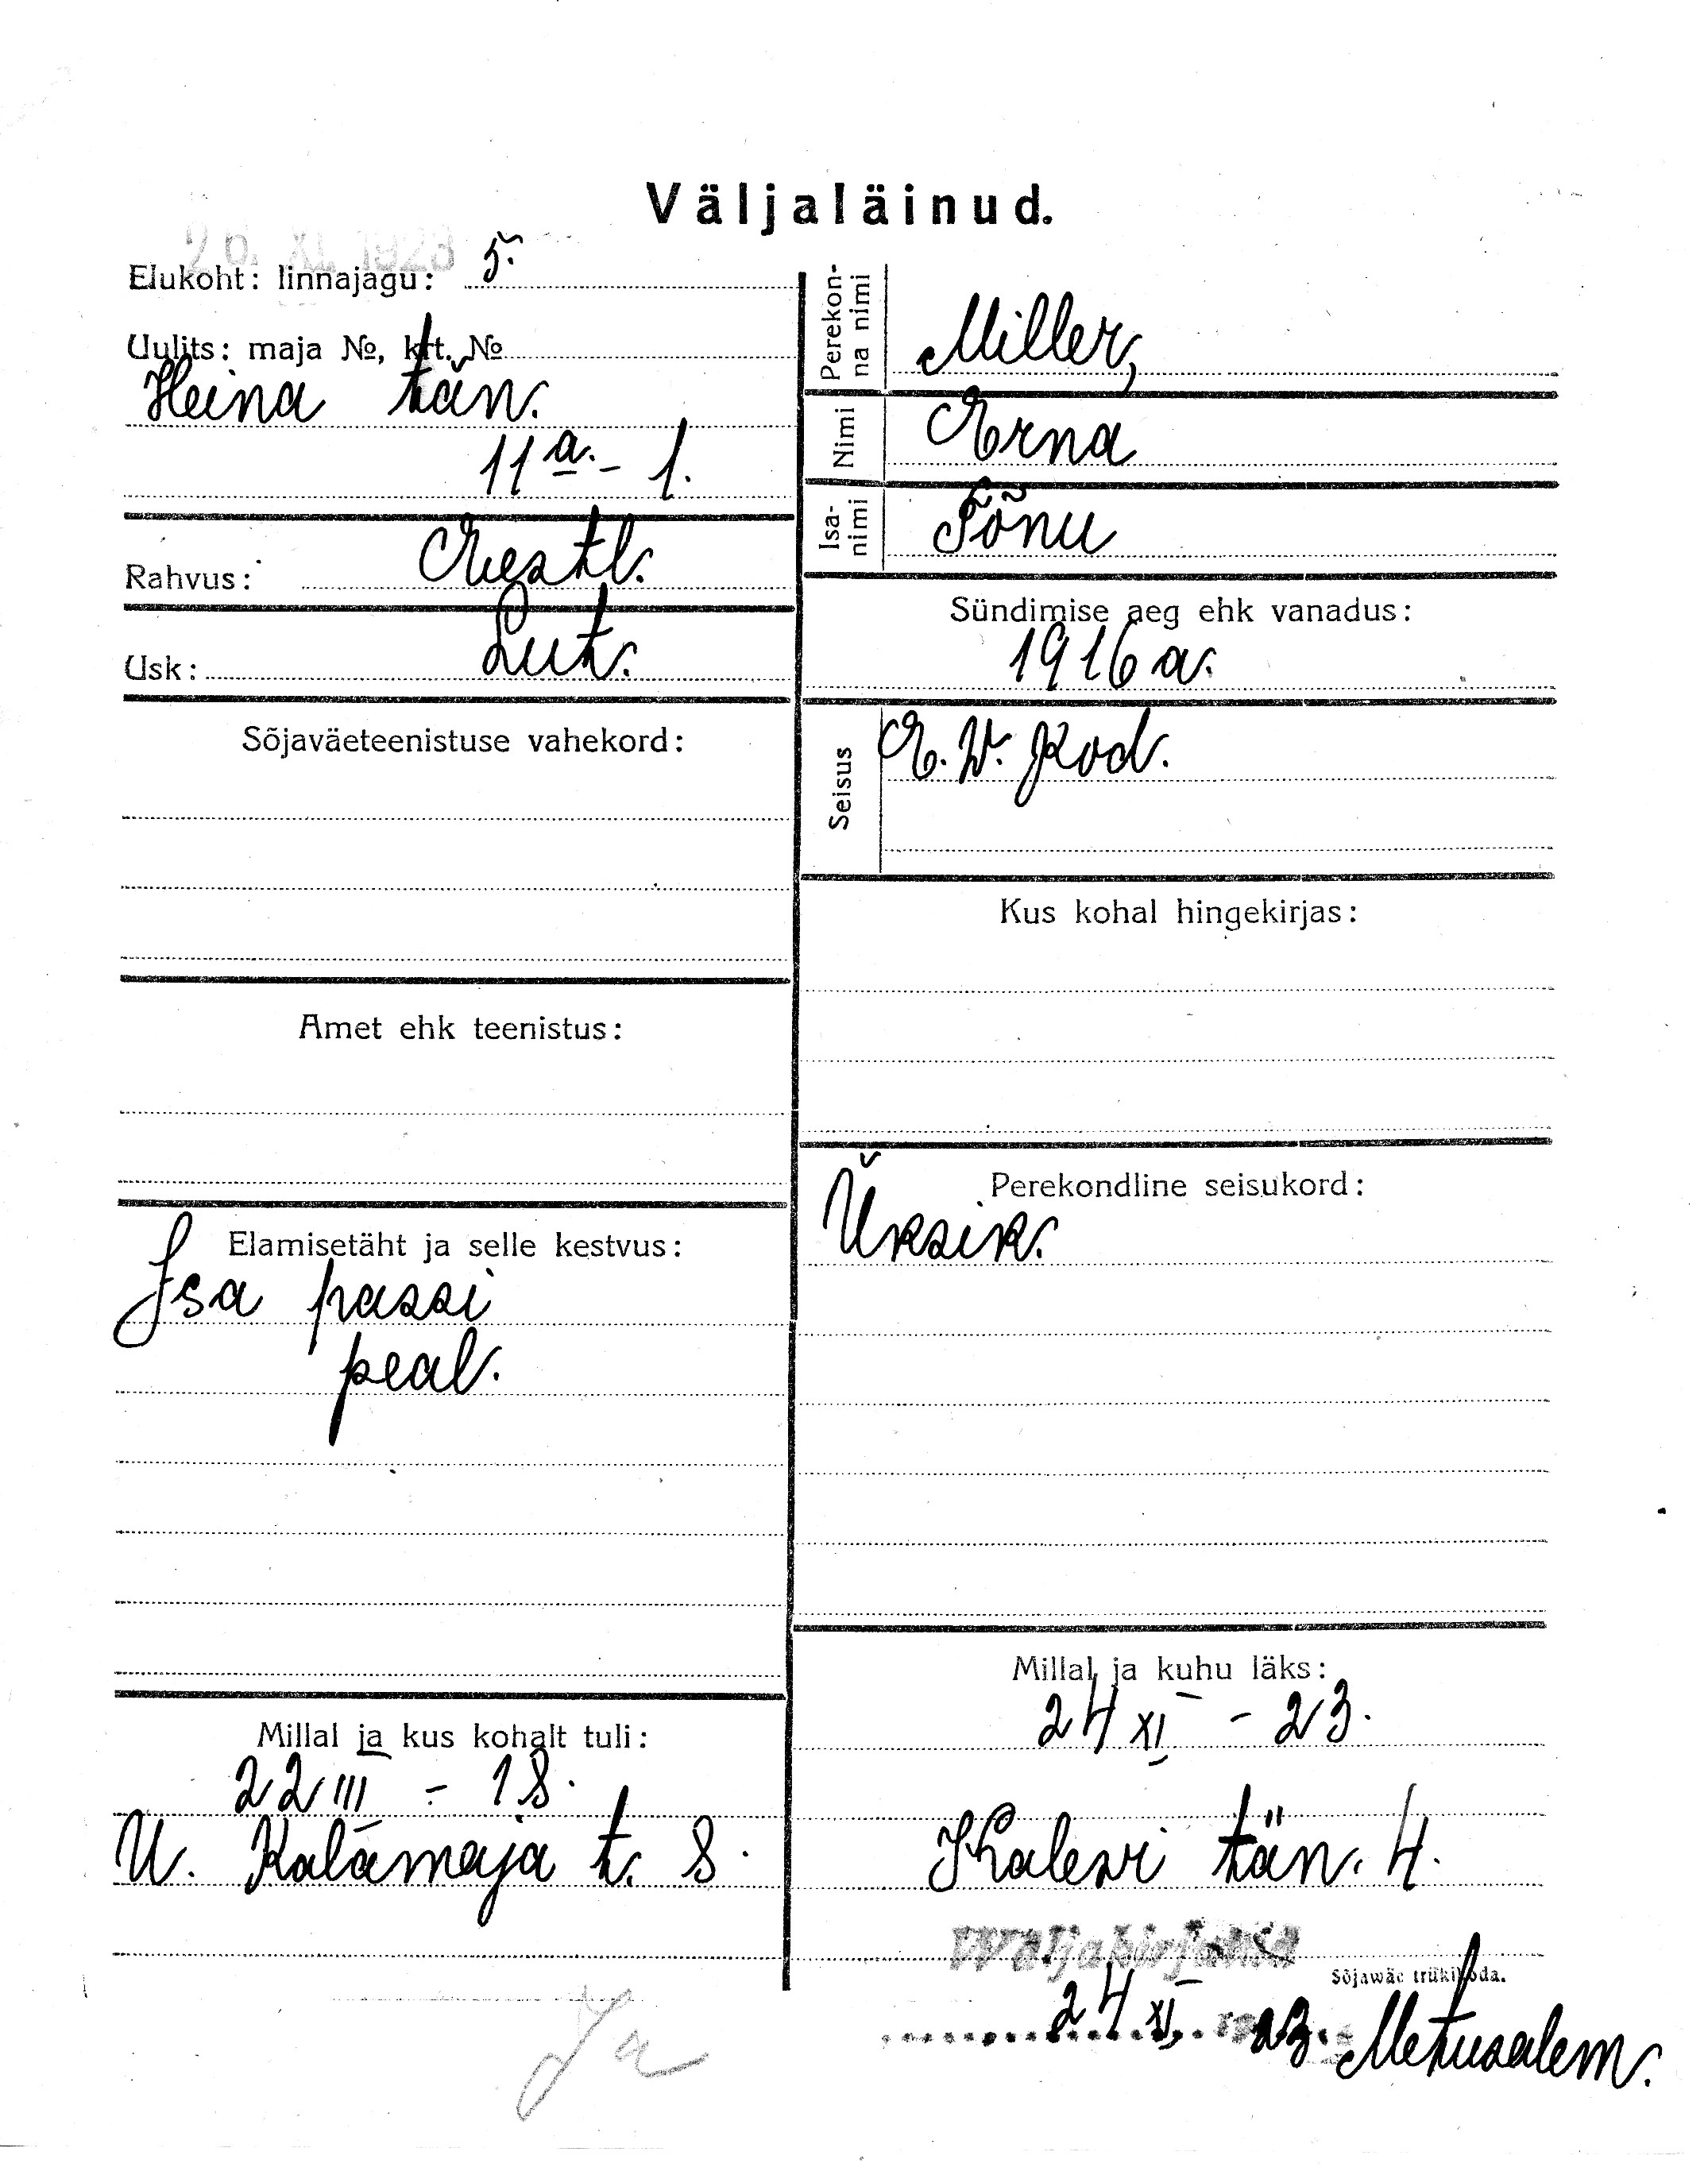 Väljaläinud.
26. XI. 1923
Elukoht: linnajagu: 5.
Uulits: maja №, krt. №
Heina tän.
11 a. - 1.
Rahvus: Eestl.
Usk: Lut.
Sõjaväeteenistuse vahekord:
Amet ehk teenistus:
Elamisetäht ja selle kestvus:
Isa passi
peal.
Millal ja kus kohalt tuli:
22 III - 18.
U. Kalamaja t. 8.
Perekon-
na nimi
Miller,
Nimi
Erna
Isa-
nimi
Tõnu
Sündimise aeg ehk vanadus:
1916 a.
Seisus
E. W. kod.
Kus kohal hingekirjas:
Perekondline seisukord:
Üksik.
Millal ja kuhu läks:
24 XI - 23.
Kalevi tän. 4.
Wäljakirjutud
Sõjawäe trükikoda.
24 XI 23. Metusalem.
Ja